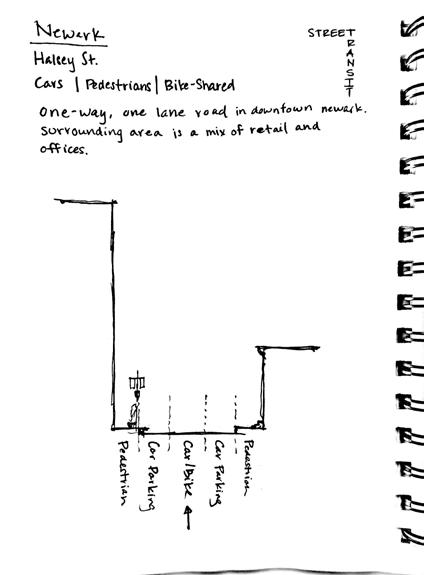 Newark
STREET
TRANSIT
Halsey St.
Cars | Pedestrians | Bike-Shared
One-way, one lane road in downtown newark.
Surrounding area is a mix of retail and
offices.
Pedestrian
Car Parking
Car/Bike
Car Parking
Pedestrian